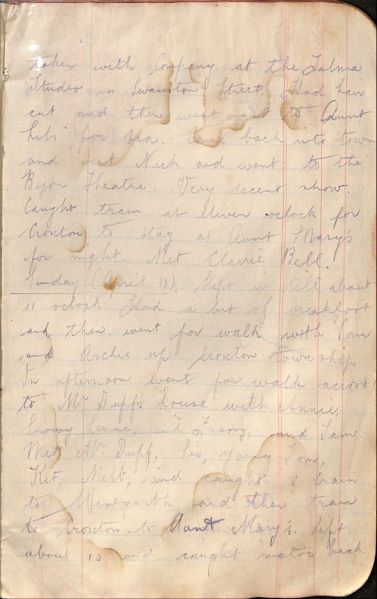 taken with Company at the Talma
Studio in Swanston Street. Had hair
cut and then went out to Aunt
for tea. Came back into town
and met Nick and went to the
Bijou Theatre. Very decent show.
Caught train at eleven oclock for
Croxton to stay at Aunt Mary's
for night. Met Clarrie Bell.
Sunday (April 18). Slept in till about
11 oclock Had a bit of breakfast
and then went for walk with Tom
and Archie up Croxton township
In afternoon went for walk across
to Mr Duff's house with Annie,
Snowy and and Sam.
Met Mr Duff, young Tom,
and caught train
to and then train
to Croxton to Aunt Mary's. Left
about 10 and caught motor back